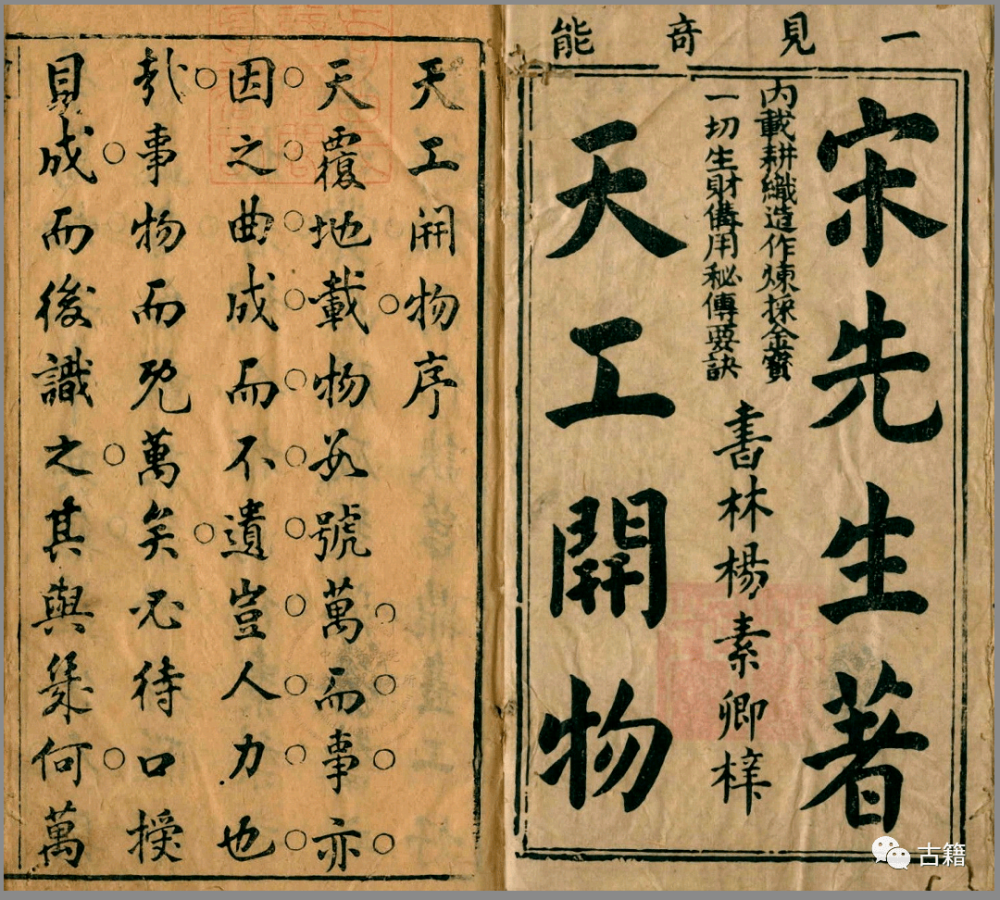 一見竒能
宋先生著
内載耕織造作煉採金寶
一切生財備用秘傳要訣
書林楊素卿梓
天工開物
天工開物序
天覆地載物数號萬而事亦
因之曲成而不遺豈人力也
哉事物而既萬矣必待口授
目成而後識之其與幾何萬
古籍